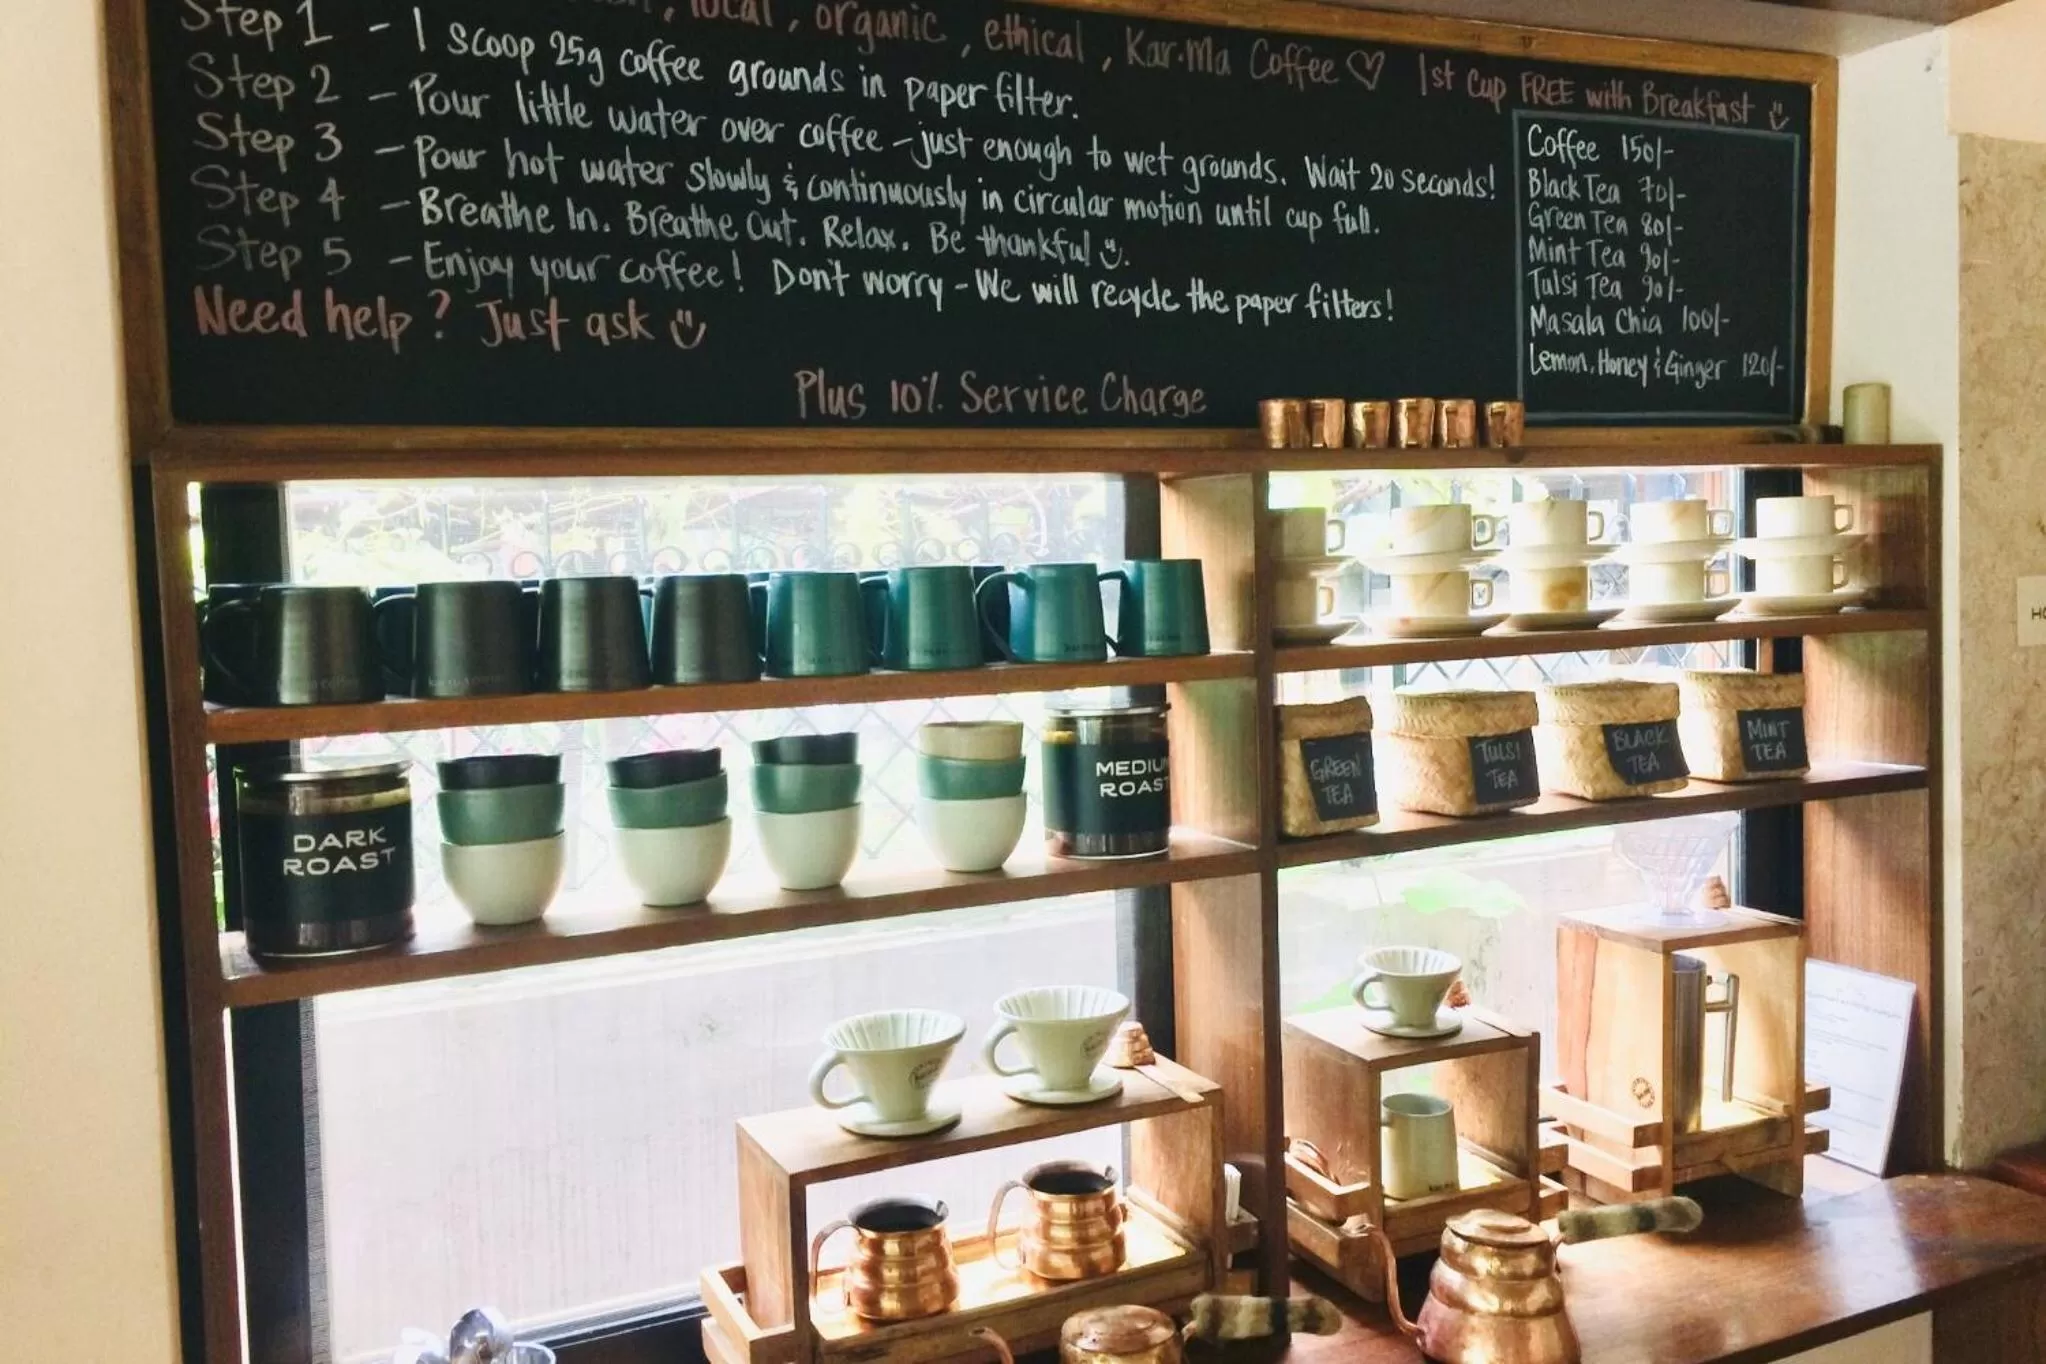 , local, organic, ethical, Kar·Ma Coffee ♡ 1st Cup FREE with Breakfast
Step 1 - 1 scoop 25g coffee grounds in paper filter.
Step 2 - Pour little water over coffee - just enough to wet grounds. Wait 20 seconds!
Step 3 - Pour hot water slowly & continuously in circular motion until cup full.
Step 4 - Breathe In. Breathe Out. Relax. Be thankful.
Step 5 - Enjoy your coffee! Don't worry - We will recycle the paper filters!
Need help? Just ask
Plus 10% Service Charge
Coffee 150/-
Black Tea 70/-
Green Tea 80/-
Mint Tea 90/-
Tulsi Tea 90/-
Masala Chia 100/-
Lemon, Honey & Ginger 120/-
DARK
ROAST
MEDIUM
ROAST
GREEN
TEA
TULSI
TEA
BLACK
TEA
MINT
TEA